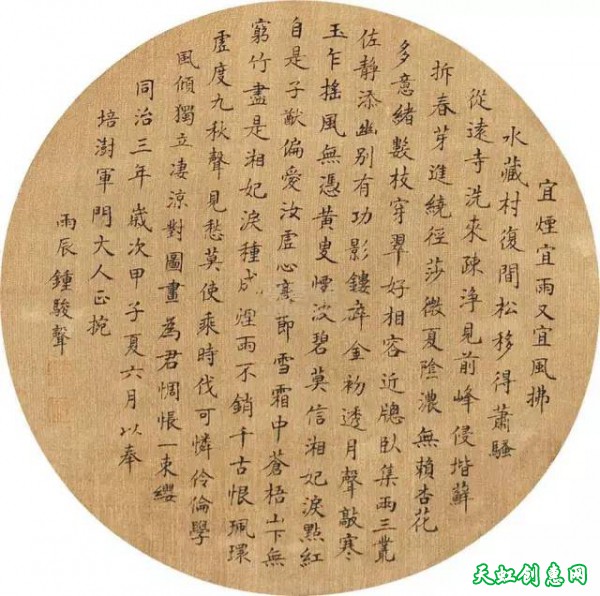 宜煙宜雨又宜風拂
水藏村復間松移得蕭騷
從遠寺洗來疎淨見前峰侵堦蘚
拆春芽迸繞徑莎微夏陰濃無賴杏花
多意緒數枝穿翠好相容近牕臥集兩三叢
佐靜添幽别有功影鏤碎金初透月聲敲寒
玉乍摇風無憑黃叟波碧莫信湘妃淚點紅
自是子猷偏愛汝虛心高節雪霜中蒼梧山下無
窮竹盡是湘妃淚種成煙雨不銷千古恨珮環
虛度九秋聲見愁莫使乘時伐可憐伶倫學
風傾獨立凄涼對圖畫為君惆悵一束
同治三年歲次甲子夏六月以奉
培澍軍門大人正捥
雨辰鍾駿聲
天虹创意网